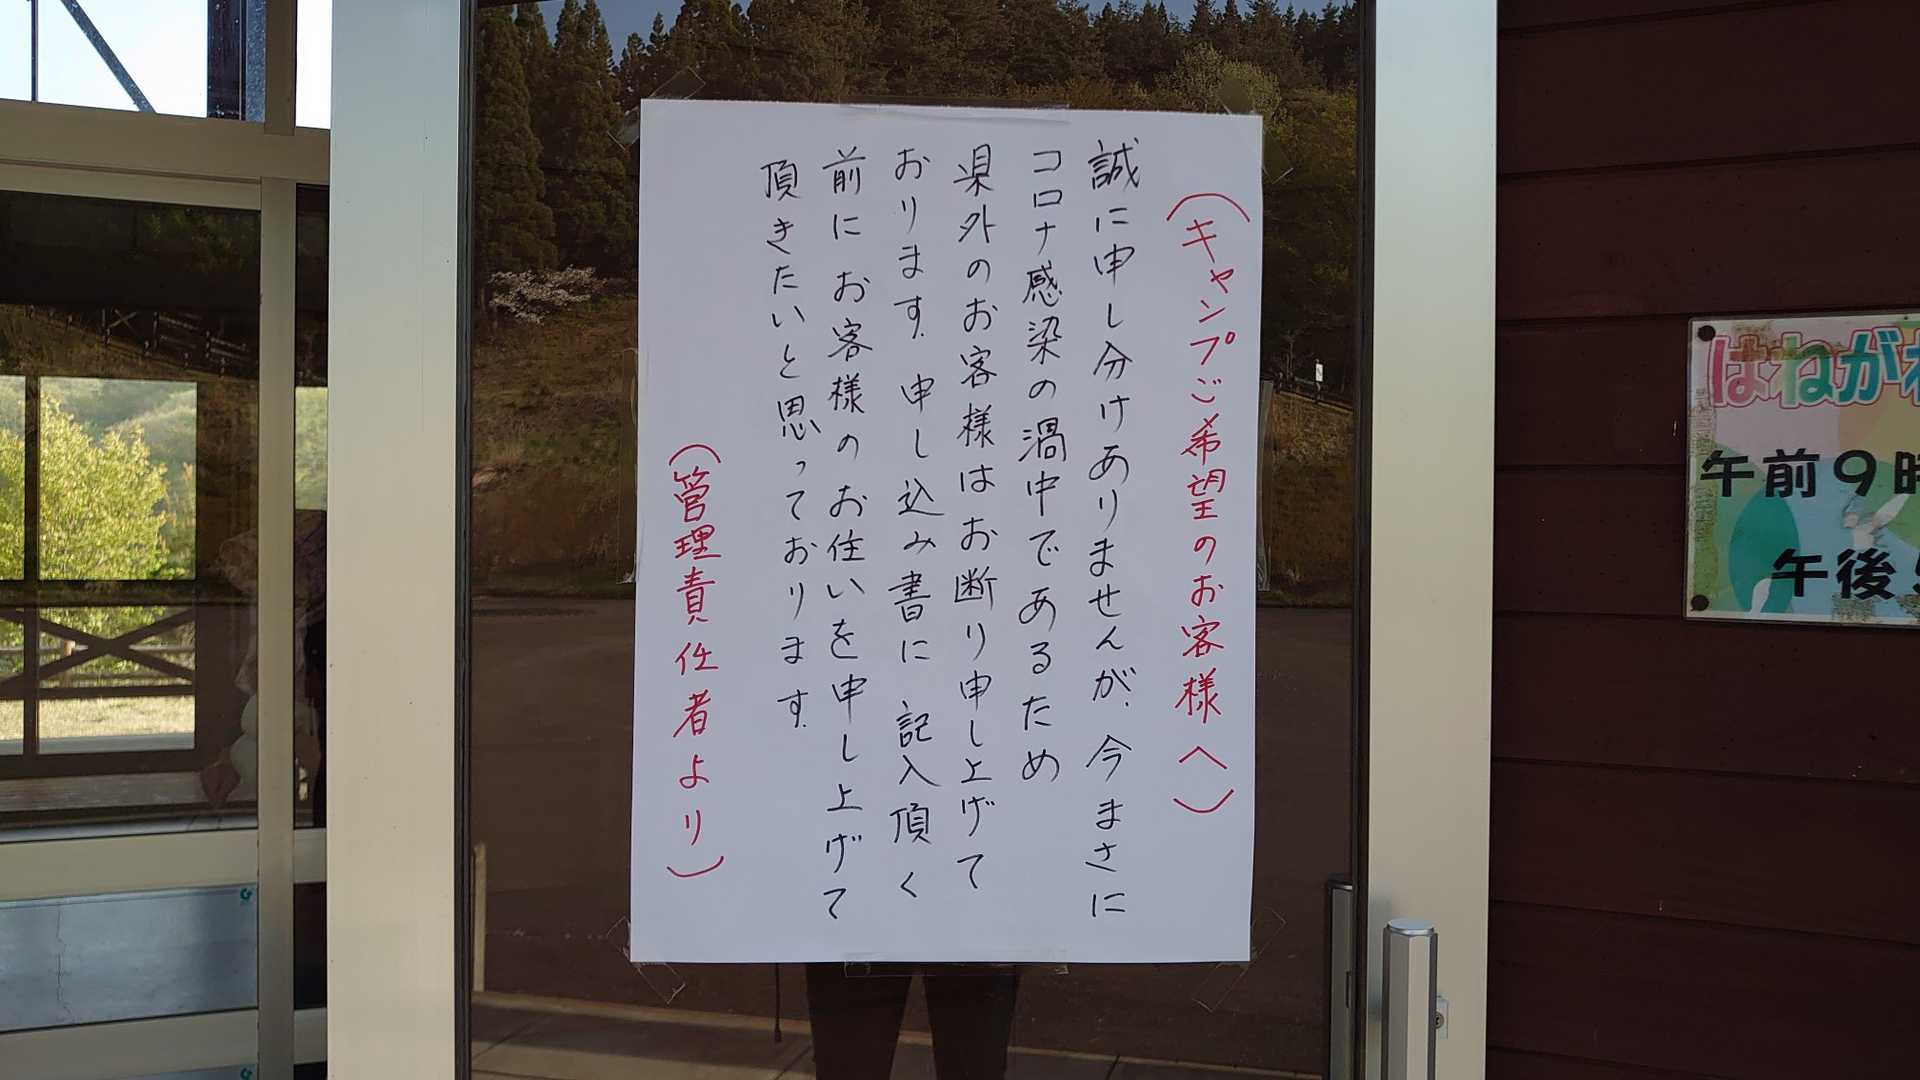 （キャンプご希望のお客様へ）
誠に申し分けありませんが、今まさに
コロナ感染の渦中であるため
県外のお客様はお断り申し上げて
おります。申し込み書に記入頂く
前にお客様のお住いを申し上げて
頂きたいと思っております。
（管理責任者より）
はねがわ
午前9時
午後5